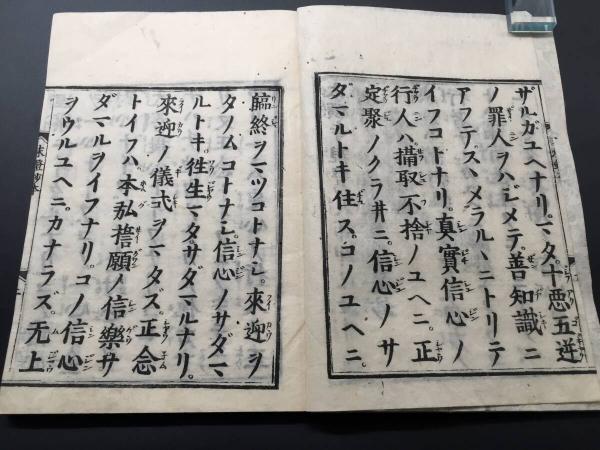 ザルガユヘナリ。マタ。十惡五逆
ノ罪人ヲハジメテ。善知識ニ
アフテ。スヽメラルヽニトリテ
イフコトナリ。真實信心ノ
行人ハ。攝取不捨ノユヘニ。正
定聚ノクラ井ニ。信心ノサ
ダマルトキ住ス。コノユヘニ。
臨終ヲマツコトナシ。來迎ヲ
タノムコトナシ。信心ノサダマ
ルトキ。徃生マタサダマルナリ。
來迎ノ儀式ヲマタズ。正念
トイフハ。本弘誓願ノ信樂サ
ダマルヲイフナリ。コノ信心
ヲウルユヘニ。カナラズ。无上